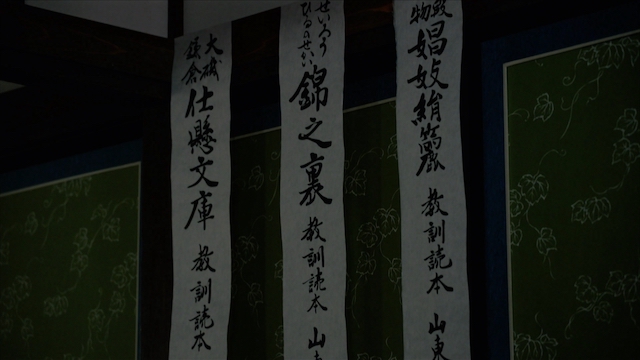 段
物
娼妓絹籭 教訓読本 山東
せいろう
ひるのせかい
錦之裏 教訓読本 山東
大磯
鎌倉
仕懸文庫 教訓読本